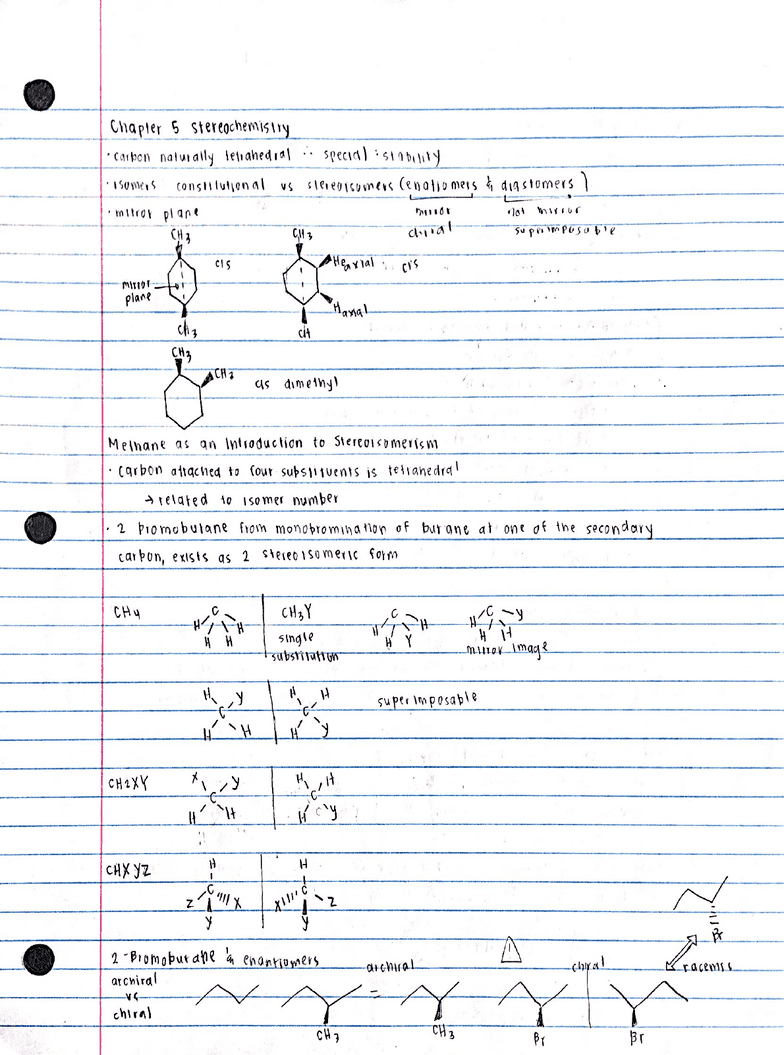 Chapter 5 stereochemistry
· carbon naturally tetrahedral ∴ special : stability
· isomers constitutional vs stereoisomers (enatiomers & diastomers)
· mirror plane mirror not mirror
chiral suprimposable
CH3 CH3
cis Heaxial cis
mirror
plane
Haxial
CH3 CH
CH3
CH3 cis dimethyl
Methane as an Introduction to Stereoisomerism
· Carbon attached to four substituents is tetrahedral
→ related to isomer number
· 2 bromobutane from monobromination of butane at one of the secondary
carbon, exists as 2 stereoisomeric form
CH4 C CH3Y C C y
H H H H
single H H
H H H Y H H
substitution mirror image
H Y H H superimposable
C C
H H H y
CH2XY X Y H H
C C
H H H y
CHXYZ H H
C C
Z X X Z
y y
Br
2-Bromobutane & enantiomers archiral chiral racemis
archiral
vs =
chiral
CH3 CH3 Br Br